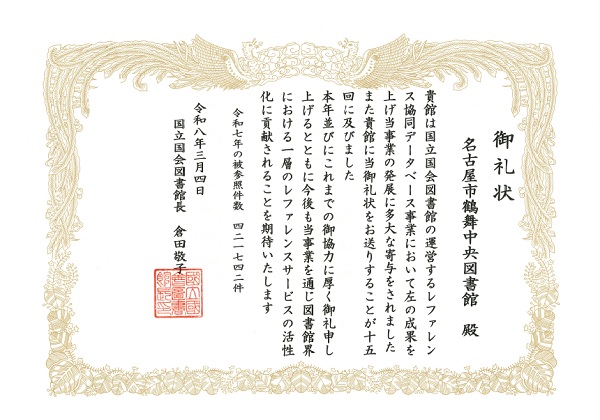 御礼状
名古屋市鶴舞中央図書館 殿
貴館は国立国会図書館の運営するレファレン
ス協同データベース事業において左の成果を
上げ当事業の発展に多大な寄与をされました
また貴館に当御礼状をお送りすることが十五
回に及びました
本年並びにこれまでの御協力に厚く御礼申し
上げるとともに今後も当事業を通じ図書館界
における一層のレファレンスサービスの活性
化に貢献されることを期待いたします
令和七年の被参照件数 四二一七四二件
令和八年三月四日
国立国会図書館長 倉田敬子